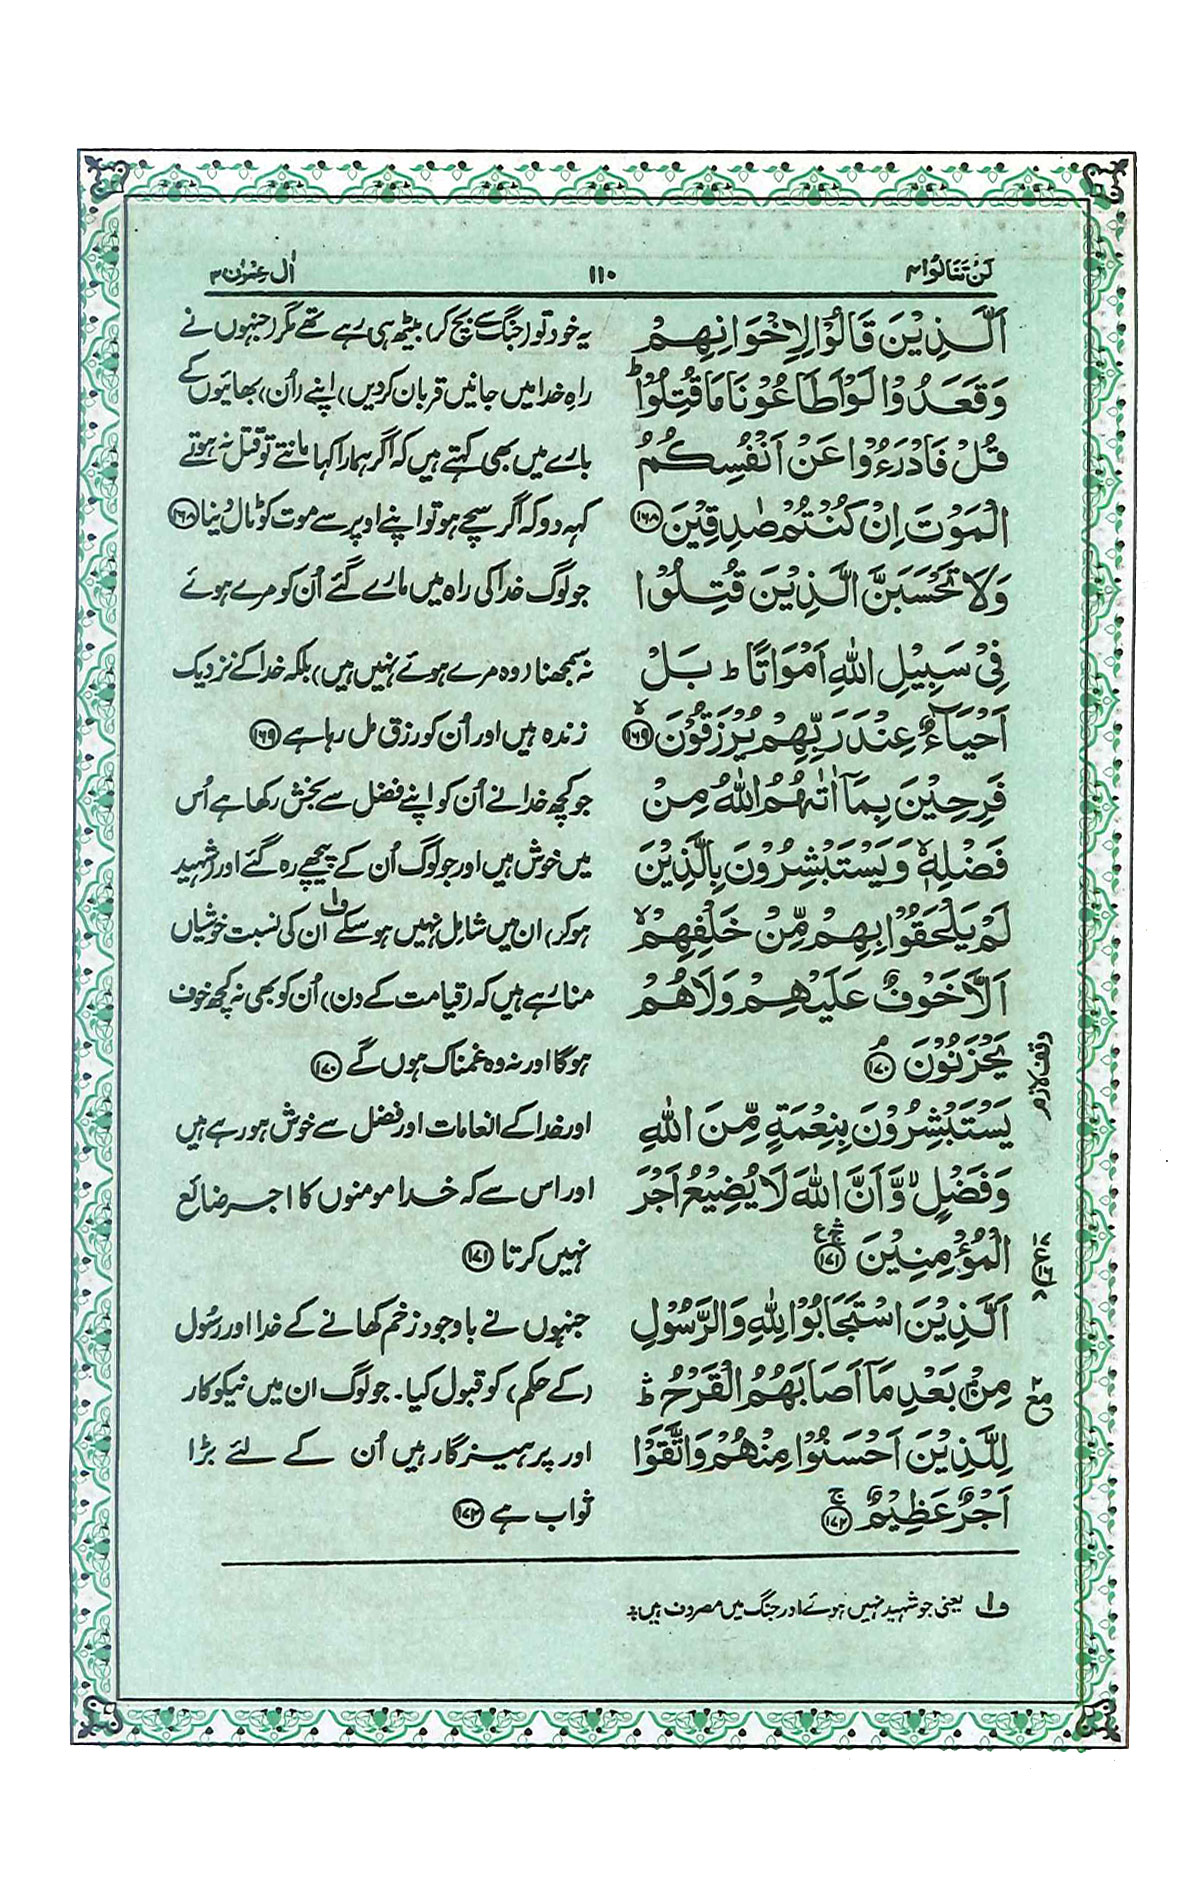 لَنْ تَنَالُوا ۴
۱۱۰
اٰلِ عِمْرٰن ۳
اَلَّذِيْنَ قَالُوْا لِاِخْوَانِهِمْ
وَقَعَدُوْا لَوْ اَطَاعُوْنَا مَا قُتِلُوْا ؕ
قُلْ فَادْرَءُوْا عَنْ اَنْفُسِكُمُ
الْمَوْتَ اِنْ كُنْتُمْ صٰدِقِيْنَ ﴿۱۶۸﴾
وَلَا تَحْسَبَنَّ الَّذِيْنَ قُتِلُوْا
فِيْ سَبِيْلِ اللّٰهِ اَمْوَاتًا ؕ بَلْ
اَحْيَآءٌ عِنْدَ رَبِّهِمْ يُرْزَقُوْنَ ﴿۱۶۹﴾ ۙ
فَرِحِيْنَ بِمَآ اٰتٰىهُمُ اللّٰهُ مِنْ
فَضْلِهٖ ۙ وَيَسْتَبْشِرُوْنَ بِالَّذِيْنَ
لَمْ يَلْحَقُوْا بِهِمْ مِّنْ خَلْفِهِمْ ۙ
اَلَّا خَوْفٌ عَلَيْهِمْ وَلَا هُمْ
يَحْزَنُوْنَ ﴿۱۷۰﴾ ۘ
يَسْتَبْشِرُوْنَ بِنِعْمَةٍ مِّنَ اللّٰهِ
وَفَضْلٍ ۙ وَّاَنَّ اللّٰهَ لَا يُضِيْعُ اَجْرَ
الْمُؤْمِنِيْنَ ﴿۱۷۱﴾
اَلَّذِيْنَ اسْتَجَابُوْا لِلّٰهِ وَالرَّسُوْلِ
مِنْۢ بَعْدِ مَآ اَصَابَهُمُ الْقَرْحُ ؕ
لِلَّذِيْنَ اَحْسَنُوْا مِنْهُمْ وَاتَّقَوْا
اَجْرٌ عَظِيْمٌ ﴿۱۷۲﴾ ۚ
یہ خود تو (جنگ سے بچ کر) بیٹھ ہی رہے تھے مگر (جنہوں نے
راہِ خدا میں جانیں قربان کردیں) اپنے (اُن) بھائیوں کے
بارے میں بھی کہتے ہیں کہ اگر ہمارا کہا مانتے تو قتل نہ ہوتے
کہہ دو کہ اگر سچے ہو تو اپنے اوپر سے موت کو ٹال دینا ﴿۱۶۸﴾
جو لوگ خدا کی راہ میں مارے گئے اُن کو مرے ہوئے
نہ سمجھنا (وہ مرے ہوئے نہیں ہیں) بلکہ خدا کے نزدیک
زندہ ہیں اور اُن کو رزق مل رہا ہے ﴿۱۶۹﴾
جو کچھ خدا نے اُن کو اپنے فضل سے بخش رکھا ہے اُس
میں خوش ہیں اور جو لوگ اُن کے پیچھے رہ گئے اور (شہید
ہو کر) ان میں شامل نہیں ہو سکے ف۱ ان کی نسبت خوشیاں
منا رہے ہیں کہ (قیامت کے دن) اُن کو بھی نہ کچھ خوف
ہوگا اور نہ وہ غمناک ہوں گے ﴿۱۷۰﴾
اور خدا کے انعامات اور فضل سے خوش ہو رہے ہیں
اور اس سے کہ خدا مومنوں کا اجر ضائع
نہیں کرتا ﴿۱۷۱﴾
جنہوں نے باوجود زخم کھانے کے خدا اور رسُول
(کے حکم) کو قبول کیا۔ جو لوگ ان میں نیکو کار
اور پرہیزگار ہیں اُن کے لئے بڑا
ثواب ہے ﴿۱۷۲﴾
وقف لازم
ف۱ یعنی جو شہید نہیں ہوئے اور جنگ میں مصروف ہیں۔